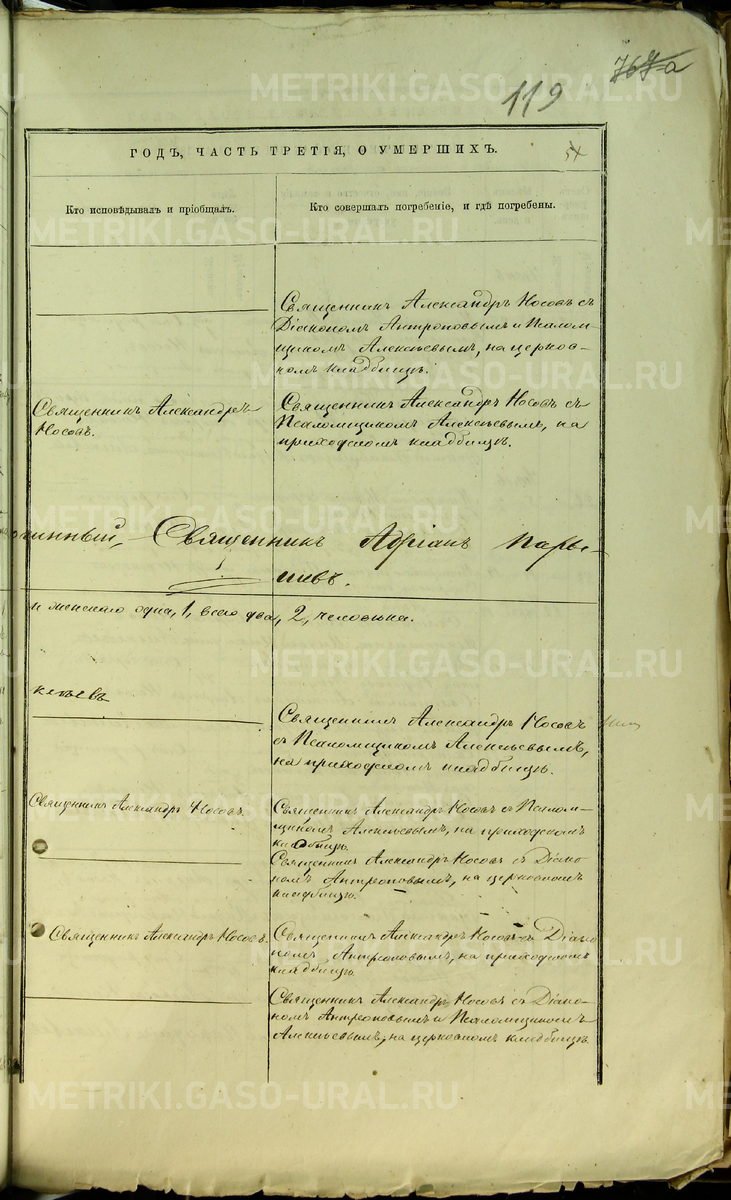 119
767-а
ГОДЪ, ЧАСТЬ ТРЕТІЯ, О УМЕРШИХЪ.
54
Кто исповѣдывалъ и пріобщалъ.
Кто совершалъ погребеніе, и гдѣ погребены.
Священникъ Александръ Носовъ съ
Діакономъ Антроповымъ и Псалом-
щикомъ Алексѣевымъ, на церков-
номъ кладбищѣ.
Священникъ Александръ
Носовъ.
Священникъ Александръ Носовъ съ
Псаломщикомъ Алексѣевымъ, на
приходскомъ кладбищѣ.
чинный, Священникъ Адріанъ
шевъ.
и женскаго одна, 1, всего два, 2, человѣка.
Священникъ Александръ Носовъ
съ Псаломщикомъ Алексѣевымъ,
на приходскомъ кладбищѣ.
Священникъ Александръ Носовъ.
Священникъ Александръ Носовъ съ Псалом-
щикомъ Алексѣевымъ, на приходскомъ
кладбищѣ.
Священникъ Александръ Носовъ съ Діако-
номъ Антроповымъ, на церковномъ
кладбищѣ.
Священникъ Александръ Носовъ.
Священникъ Александръ Носовъ съ Діако
номъ Антроповымъ, на приходскомъ
кладбищѣ.
Священникъ Александръ Носовъ съ Діако-
номъ Антроповымъ и Псаломщикомъ
Алексѣевымъ, на церковномъ кладбищѣ
METRIKI.GASO-URAL.RU